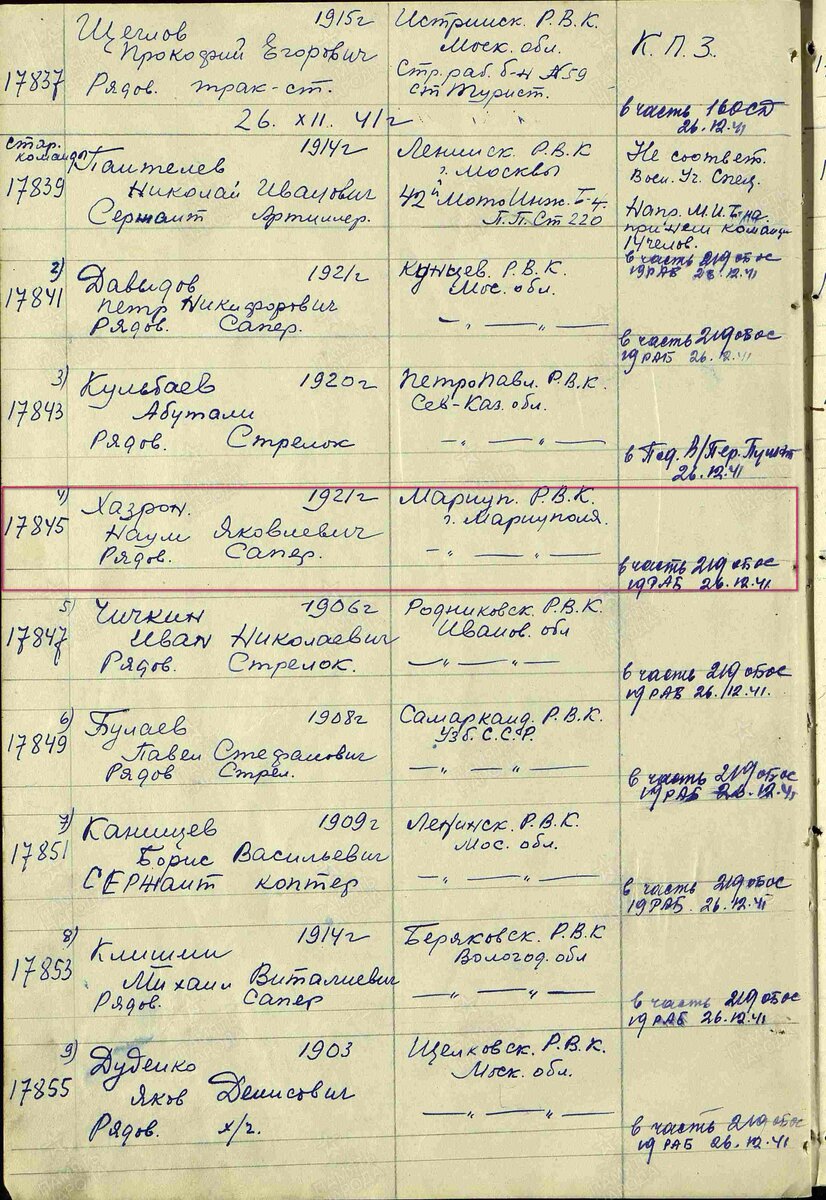 Щеглов 1915г Истринск. Р.В.К.
Прокофий Егорович Моск. обл. К.П.З.
17837 Рядов. трак-ст. Стр. раб. б-н №59
ст Турист.
26. XII. 41г в часть 160СД
26.12.41
стар.
команды
Пантелев 1914г Ленинск. Р.В.К Не соответ.
17839 Николай Иванович г. Москвы Воен. Уч. Спец.
Сержант Артиллер. 42й Мото Инж. Б-н. Напр. М.И.Б на
П.П.Ст 220 прием команды
14 челов.
в часть 219
19 РАБ 26.12.41
2) Давыдов 1921г Кунцев. Р.В.К.
17841 Петр Никифорович Мос. обл.
Рядов. Сапер. — „ — „ —
в часть 219
19 РАБ 26.12.41
3) Кульбаев 1920г Петропавл. Р.В.К.
17843 Абутали Сев-Каз. обл.
Рядов. Стрелок — „ — „ —
26.12.41
4) Хазрон. 1921г Мариуп. Р.В.К.
17845 Наум Яковлевич г. Мариуполя.
Рядов. Сапер. — „ — „ —
в часть 219
19 РАБ 26.12.41
5) Чичкин 1906г Родниковск. Р.В.К.
17847 Иван Николаевич Иванов. обл
Рядов. Стрелок. — „ — „ —
в часть 219
19 РАБ 26.12.41.
6) Булаев 1908г Самарканд. Р.В.К.
17849 Павел Стефанович Узб. С.С.Р.
Рядов Стрел. — „ — „ —
в часть 219
19 РАБ 26.12.41
7) Канищев 1909г Ленинск. Р.В.К.
17851 Борис Васильевич Мос. обл.
Сержант коптер — „ — „ —
в часть 219
19 РАБ. 26.12.41
8) Клишин 1914г Беряковск. Р.В.К
17853 Михаил Виталиевич Вологод. обл
Рядов. Сапер — „ — „ —
в часть 219
19 РАБ 26.12.41
9) Дуденко 1903 Щелковск. Р.В.К.
17855 Яков Денисович Моск. обл.
Рядов. х/г. — „ — „ —
в часть 219
19 РАБ 26.12.41